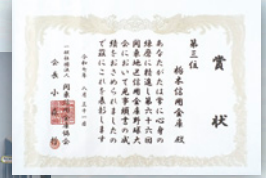 賞状
第三位
栃木信用金庫 殿
あなたがたは常に心身の
練磨に精進し第六十六回
関東地区信用金庫野球大
会において見事頭書の成
績をおさめられましたの
で茲にこれを表彰します
令和七年 八月三十一日
一般社団法人 関東信用金庫協会
会長 小